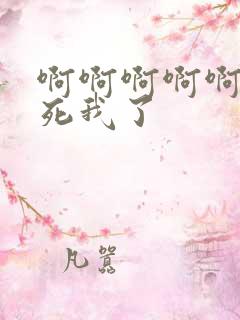 啊啊啊啊啊
死我了
凡嚣